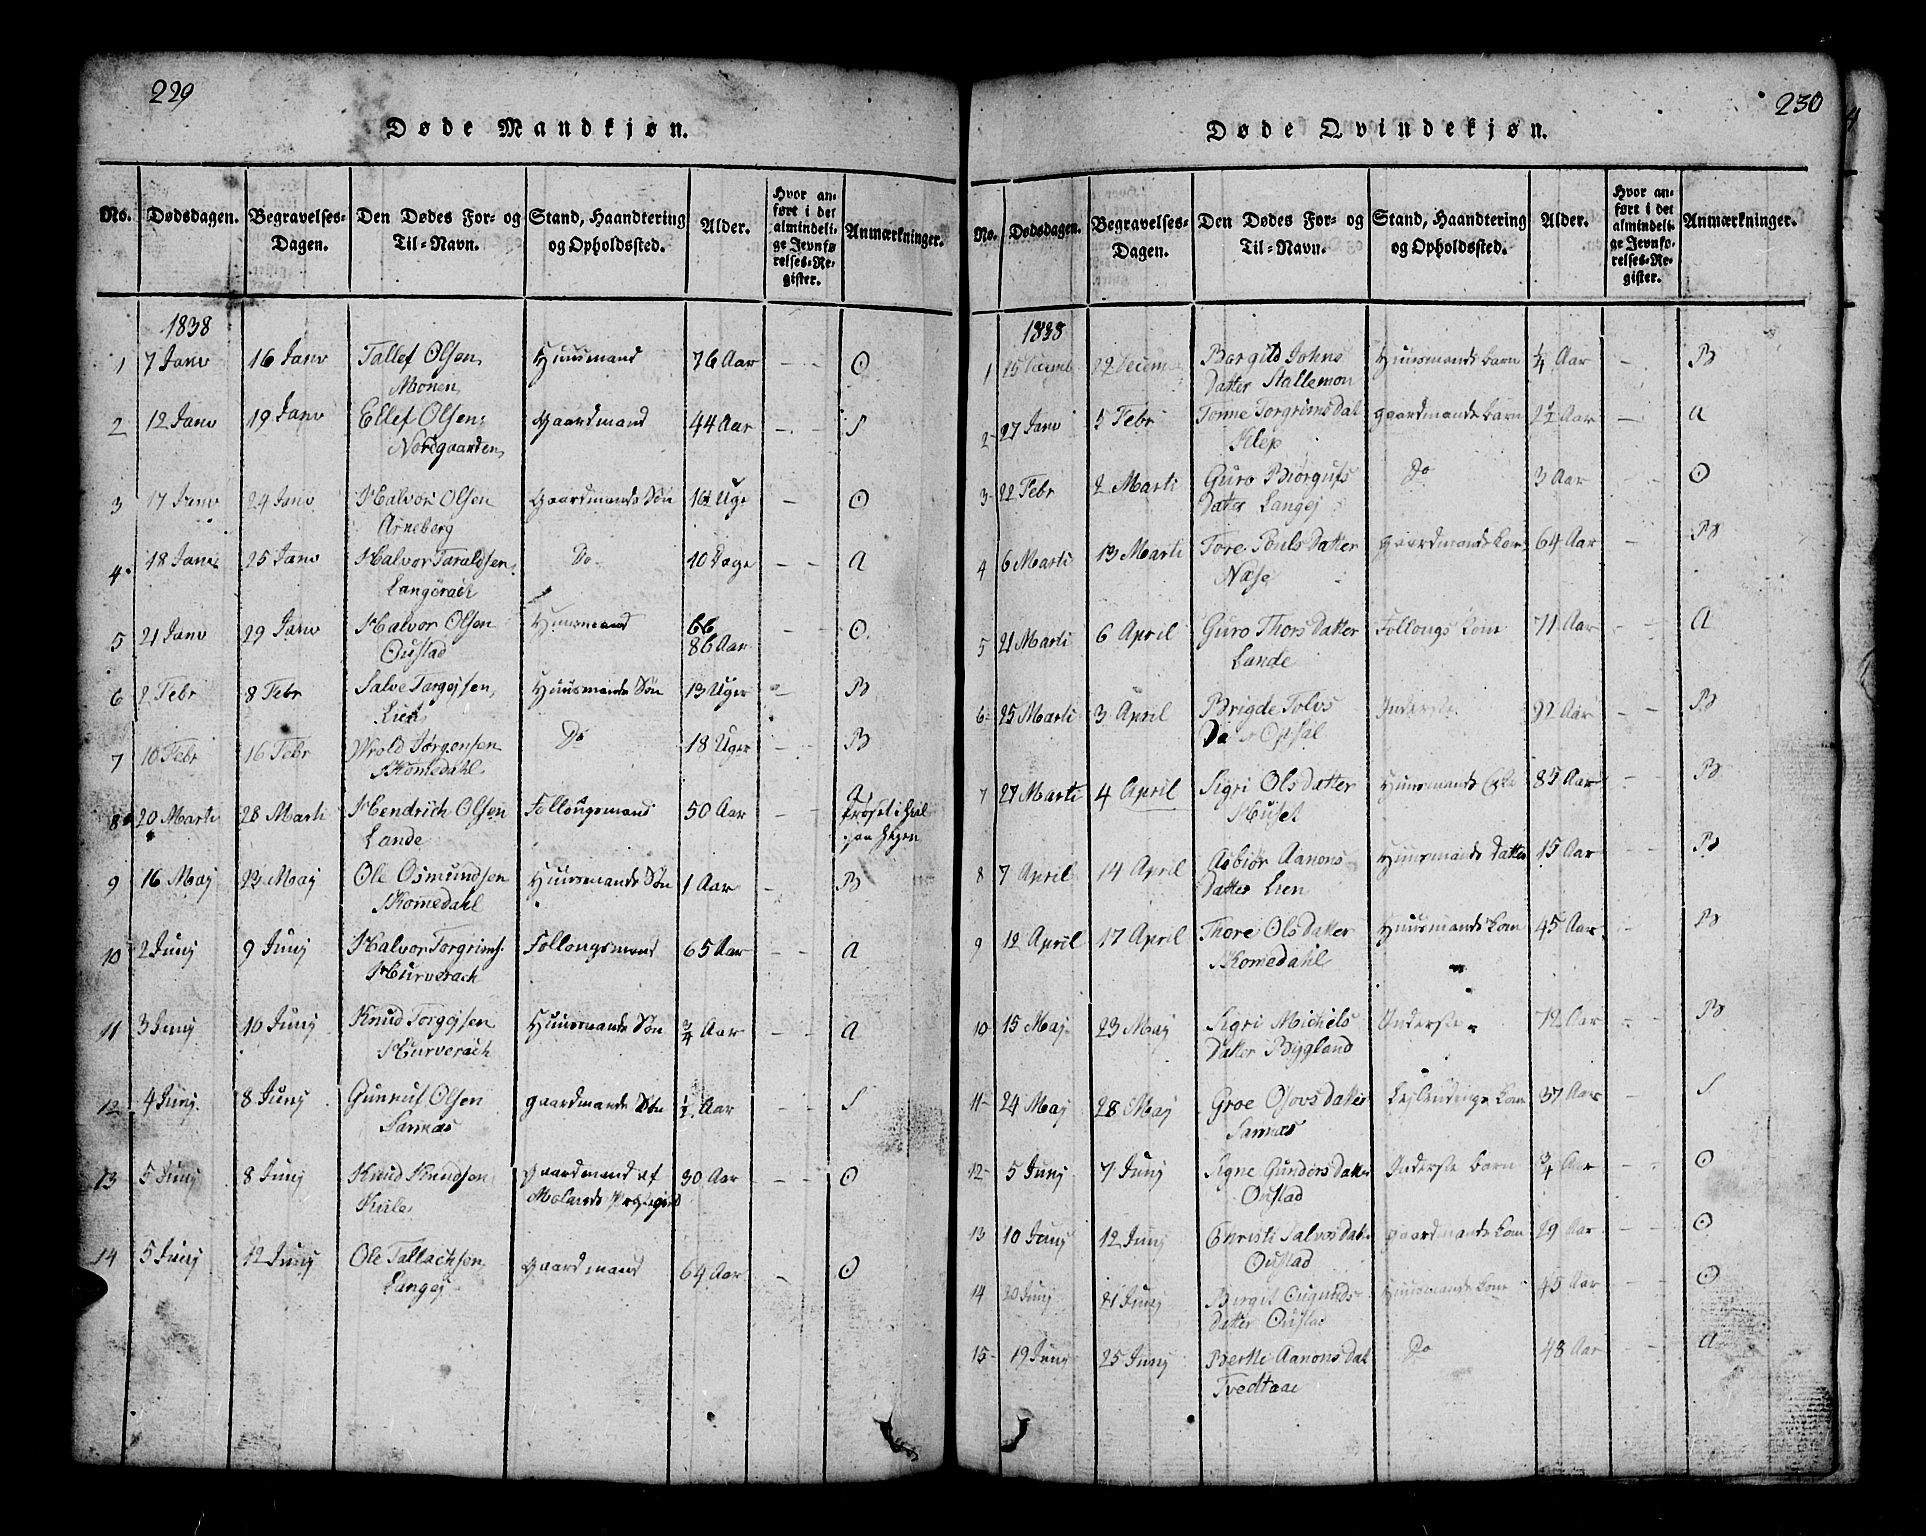 229
Døde Mandkjøn.
No. Dødsdagen. Begravelses-Dagen. Den Dødes For- og Til-Navn. Stand, Haandtering og Opholdssted. Alder. Hvor anført i det almindelige Jevnførelses-Register. Anmærkninger.
1838
1 7 Janv 16 Janv Tallef Olsen Huusmand 76 Aar - - O
Monen
2 12 Janv 19 Janv Ellef Olsen Gaardmand 44 Aar - - S
Nordgaarden
3 17 Janv 24 Janv Halvor Olsen Gaardmands Søn 16½ Uge - O
Arneberg
4 18 Janv 25 Janv Halvor Taraldsen Do 10 Dage - - A
Langerach
5 21 Janv 29 Janv Halvor Olsen Huusmand 66 - - O
Oustad 86 Aar
6 2 Febr 8 Febr Salve Targejsen Huusmands Søn 13 Uger - B
Lien
7 10 Febr 16 Febr Wrold Jørgensen Do 18 Uger - - B
Skomedahl
8 20 Marti 28 Marti Hendrich Olsen Follougsmand 50 Aar - A
Lande
9 16 Maj 23 Maj Ole Osmundsen Huusmands Søn 1 Aar - B
Skomedahl
10 2 Junj 9 Junj Halvor Torgrims. Follongsmand 65 Aar - - A
Hurverach
11 3 Junj 10 Junj Knud Torgejsen Huusmands Søn ¾ Aar - - A
Hurverach
12 4 Junj 8 Junj Gunnuf Olsen gaardmands Søn ½ Aar - - S
Sannæs
13 5 Junj 8 Junj Knud Knudsen gaardmand af 30 Aar - - O
Kile Molands
14 5 Junj 12 Junj Ole Tallachsen gaardmand 64 Aar - O
Langej
230
Døde Qvindekjøn.
No. Dødsdagen. Begravelses-Dagen. Den Dødes For- og Til-Navn. Stand, Haandtering og Opholdssted. Alder. Hvor anført i det almindelige Jevnførelses-Register. Anmærkninger.
1838
1 15 Decemb 22 Decem Borgild Johns Huusmands barn ¼ Aar - B
Datter Stallemon
2 27 Janv 5 Febr Tonne Torgrims Dat gaardmands barn 2½ Aar - A
Klep
3 22 Febr 2 Marti Guro Biørgufs Do 3 Aar - O
Datter Langej
4 6 Marti 13 Marti Tore Pouls Datter gaardmands kone 64 Aar B
Næse
5 21 Marti 6 April Guro Thors Datter Follongs kone 71 Aar - - A
Lande
6 25 Marti 3 April Brigde Tolvs Inderste 92 Aar - - B
Opsal
7 27 Marti 4 April Sigri Ols Datter Huusmands 85 Aar - - B
Huset
8 7 April 14 April Asbiør Aanons Huusmands Datter 15 Aar - B
Datter Lien
9 12 April 17 April Thore Ols Datter Huusmands kone 45 Aar - B
Skomedahl
10 15 Maj 23 Maj Sigri Michels Inderste 72 Aar - - B
Datter Bygland
11 24 Maj 28 Maj Groe Osovs Datter Lejlendings kone 37 Aar - - S
Sannæs
12 5 Junj 7 Junj Signe Gunders Datter Inderste barn ¾ Aar - - O
Oustad
13 10 Junj 12 Junj Christi Salves Dat. gaardmands kone 29 Aar - - O
Oustad
14 20 Junj 21 Junj Birgit Huusmands kone 45 Aar - - O
Datter Oustad
15 19 Junj 25 Junj Berthe Aanons Dat Do 48 Aar - - A
Tvedtaae